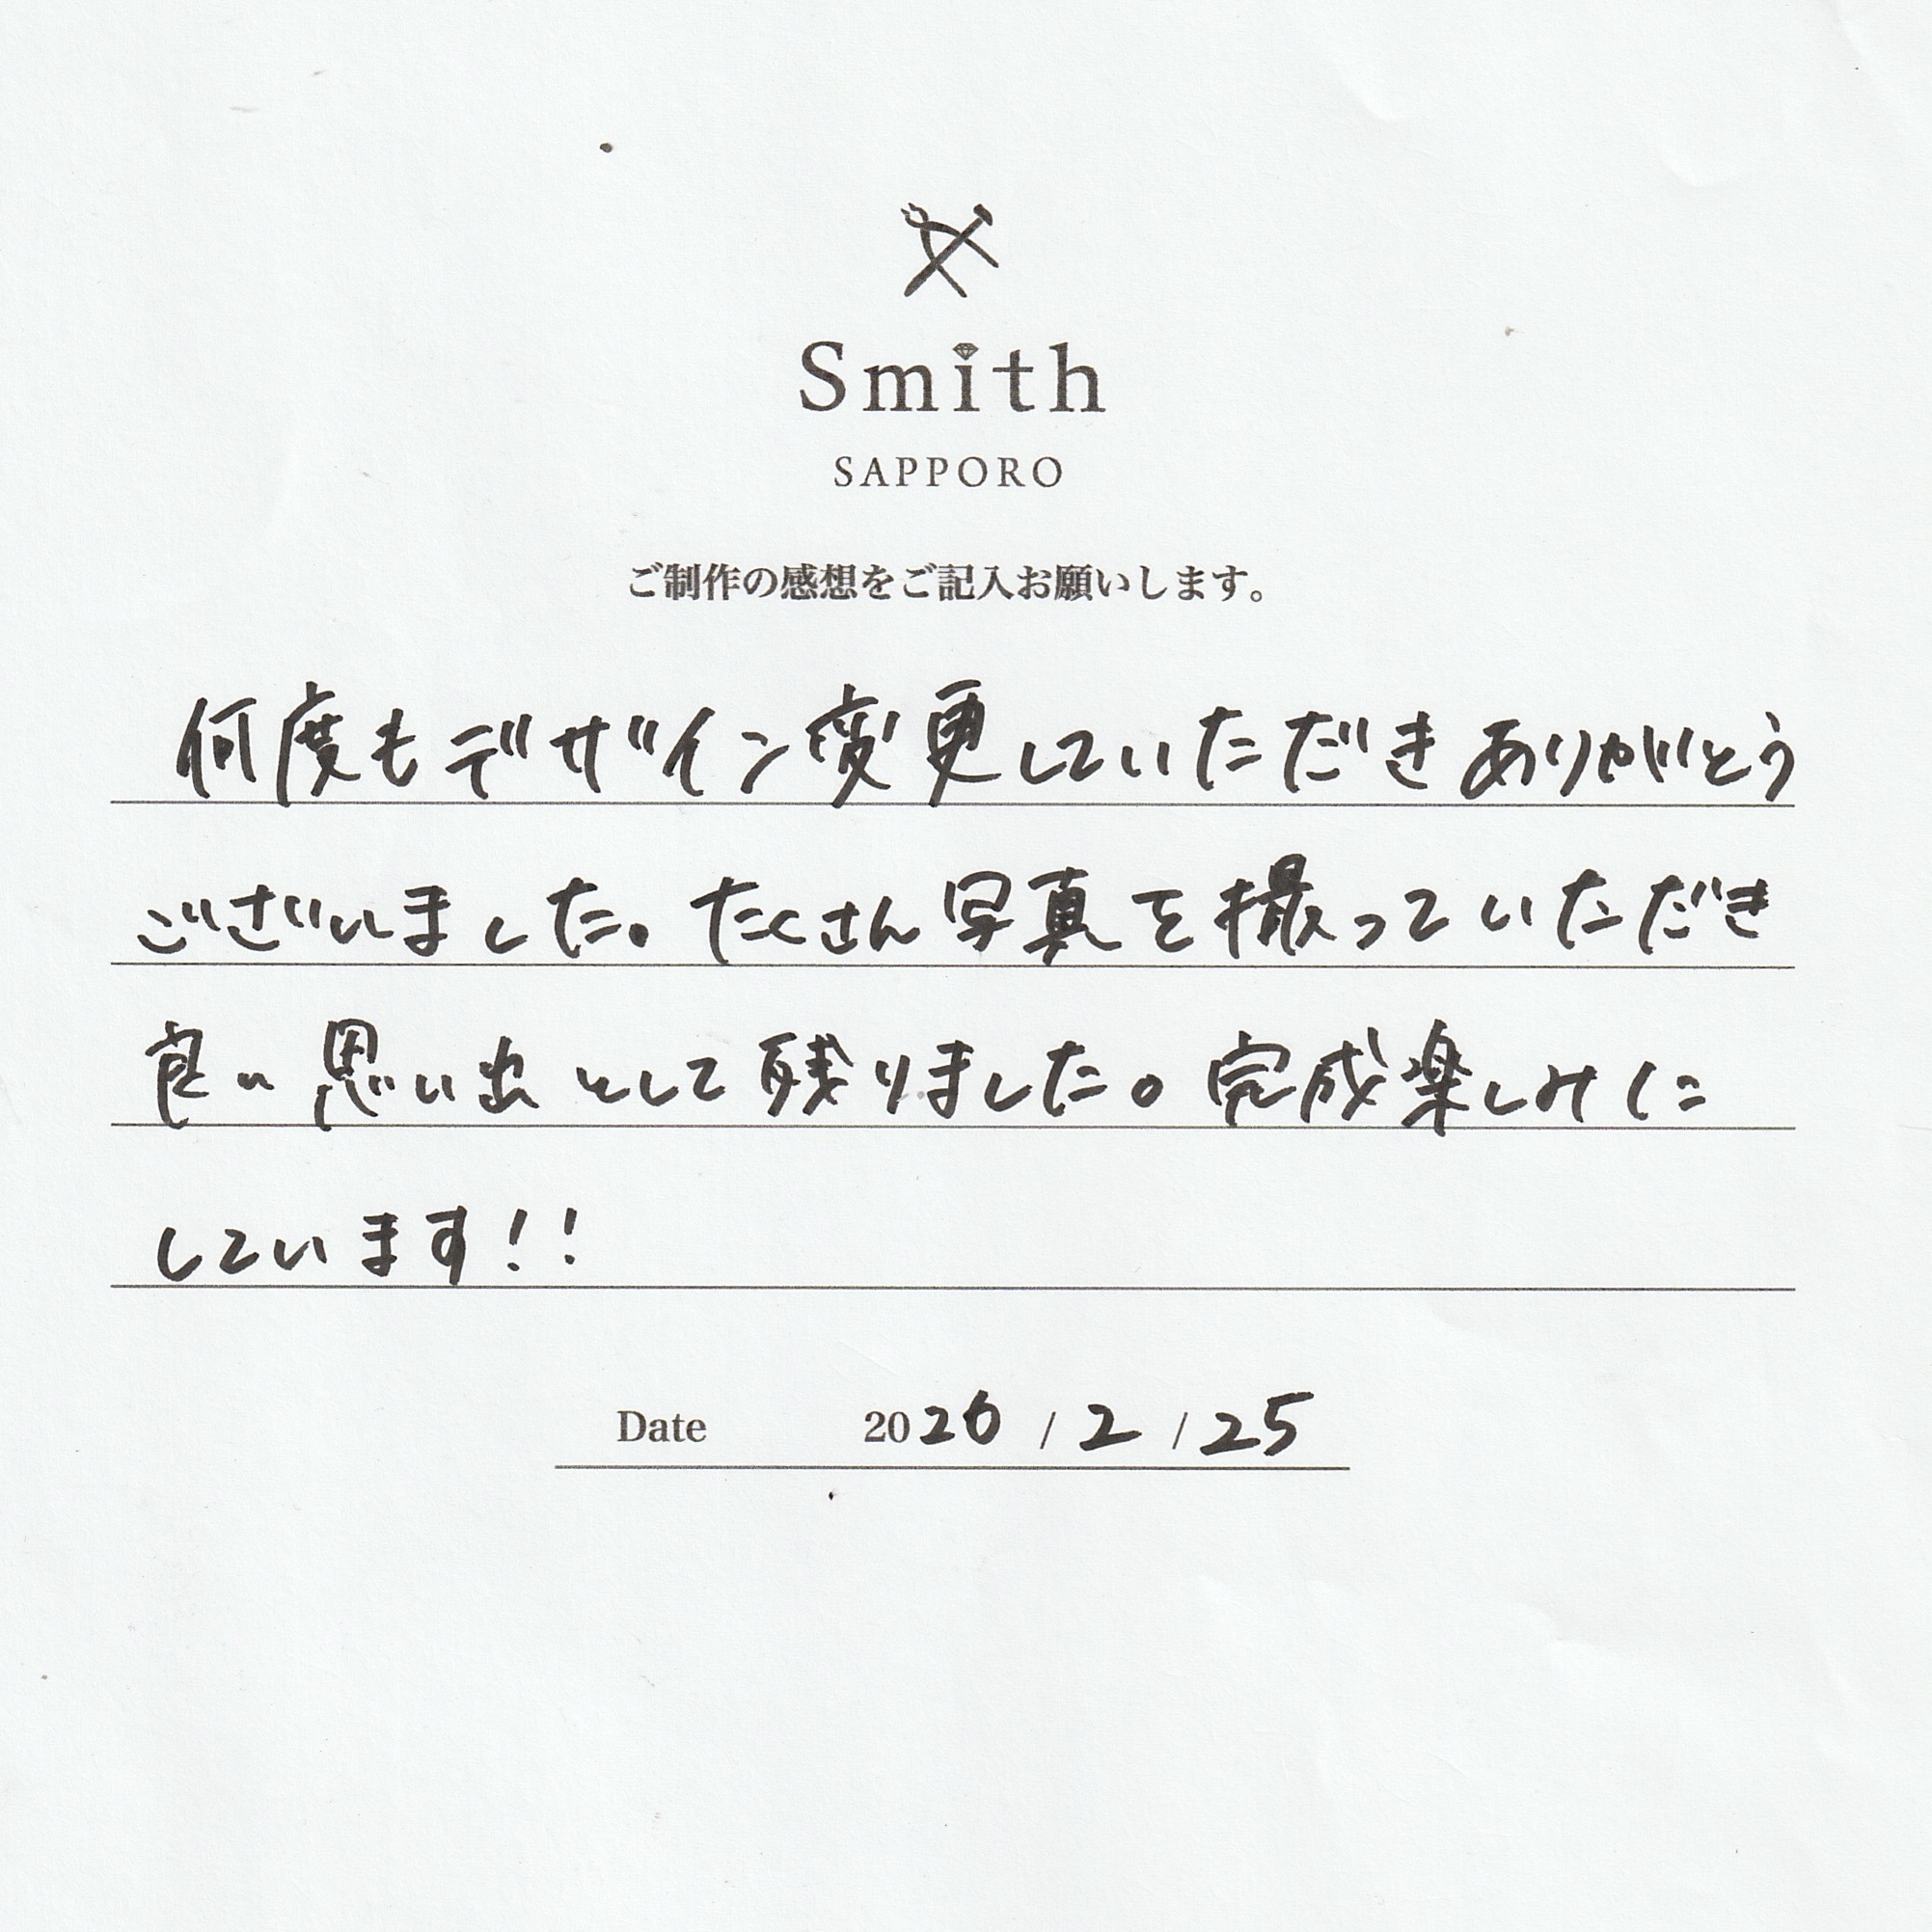 Smith
SAPPORO
ご制作の感想をご記入お願いします。
何度もデザイン変更していただきありがとう
ございました。たくさん写真を撮っていただき
良い思い出として残りました。完成楽しみに
しています!!
Date 2026 / 2 / 25